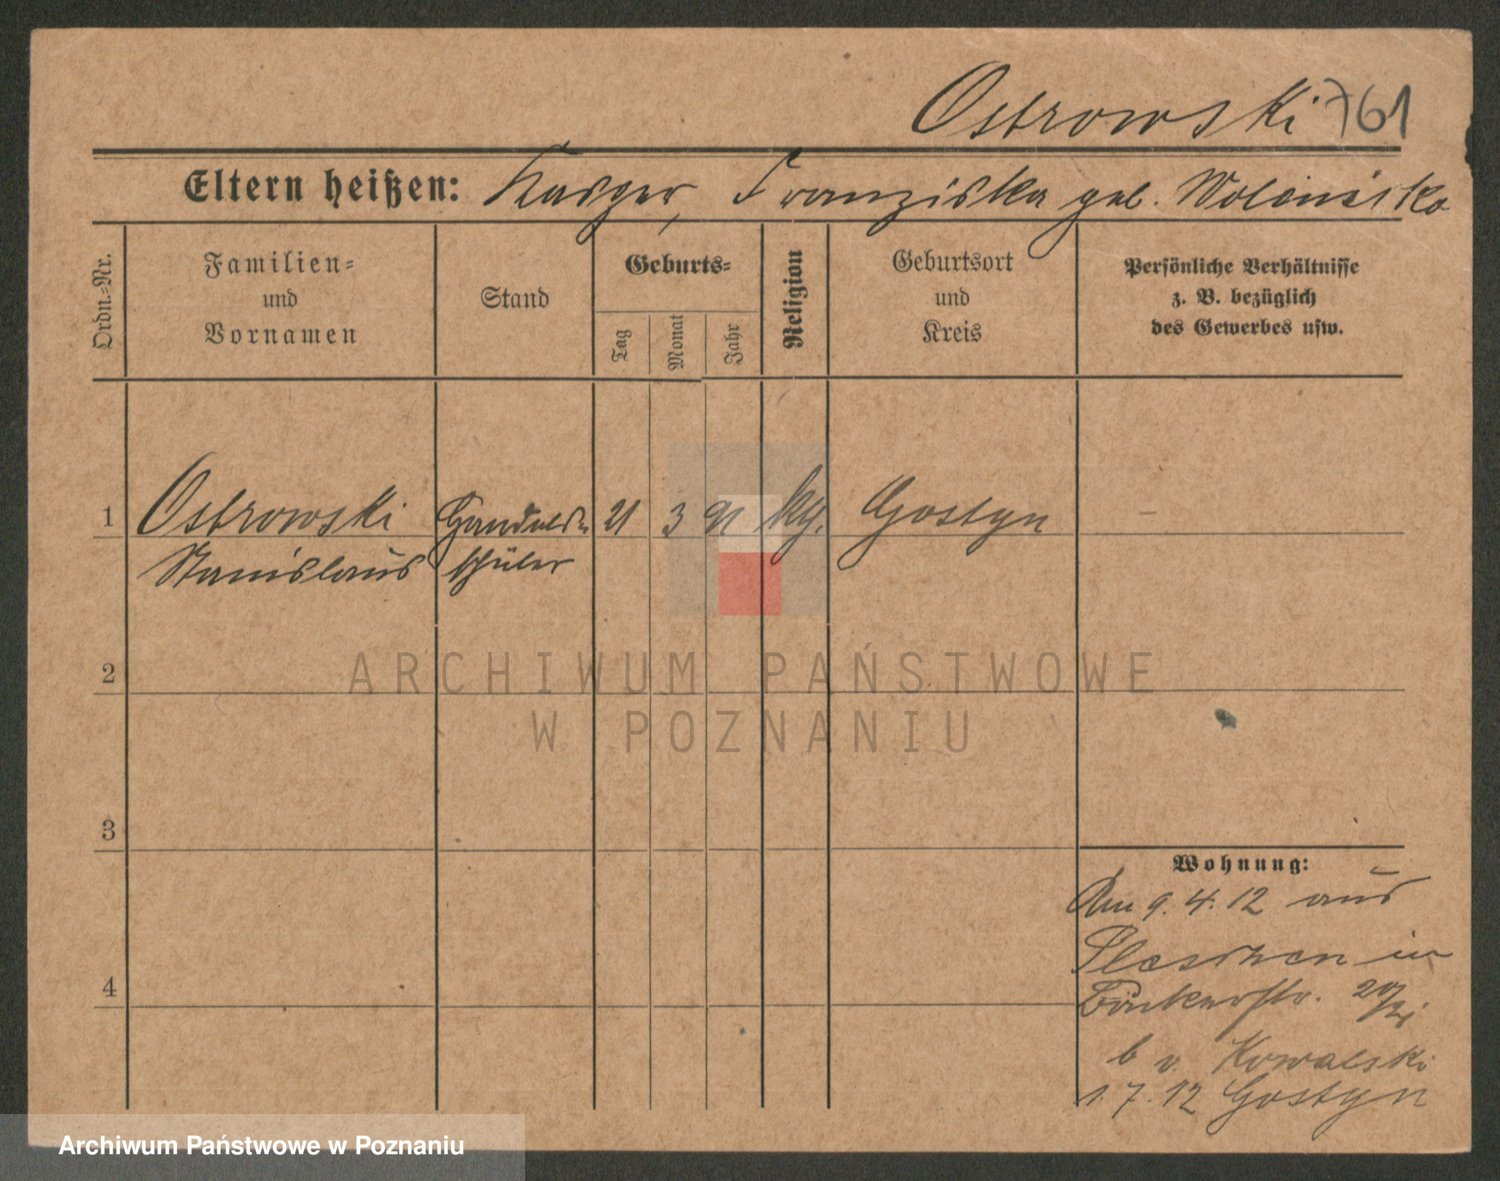 Ostrowski 761
Eltern heißen: Kasper, Franziska geb.
Ordn.-Nr.
Familien-
und
Vornamen
Stand
Geburts-
Tag
Monat
Jahr
Religion
Geburtsort
und
Kreis
Persönliche Verhältnisse
z. B. bezüglich
des Gewerbes usw.
1 Ostrowski Handels- 21 3 91 Gostyn -
Stanislaus schüler
2
3
4
Wohnung:
Am 9. 4. 12 aus
Pleschen in
Bäckerstr.
b v. Kowalski
1. 7. 12 Gostyn
ARCHIWUM PAŃSTWOWE
W POZNANIU
Archiwum Państwowe w Poznaniu